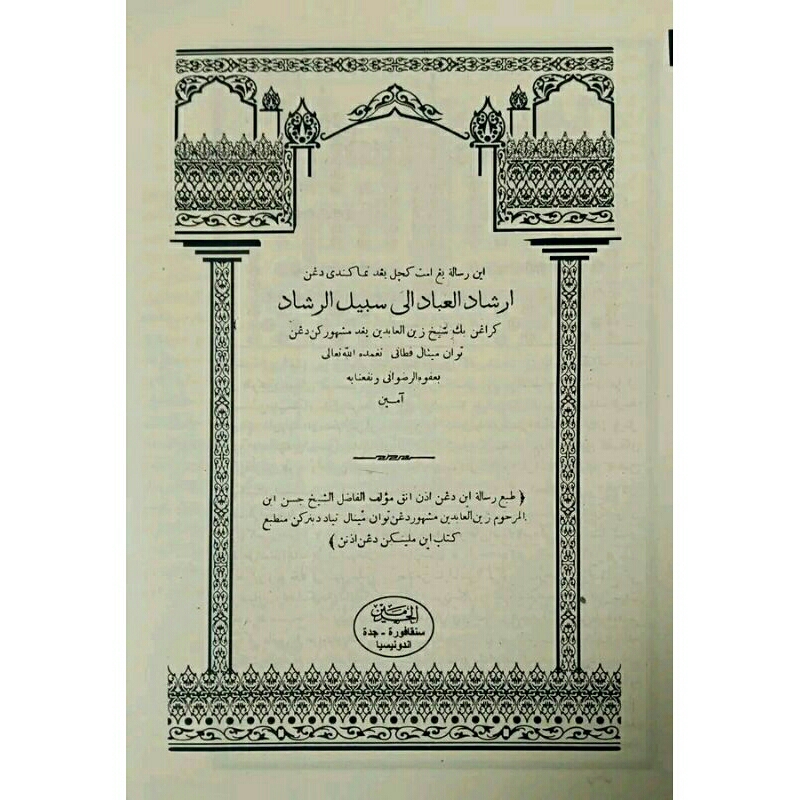 اين رسالة يڠ امت كچل يڠد نماكندى دڠن
ارشاد العباد الى سبيل الرشاد
كراڠن بڬ شيخ زين العابدين يڠد مشهوركن دڠن
توان مينال فطانى تغمده الله تعالى
بعفوه الرضوانى ونفعنابه
آمين
﴿ طبع رسالة اين دڠن اذن انق مؤلف الفاضل الشيخ حسن ابن
المرحوم زين العابدين مشهور دڠن توان مينال تياد دبنركن منطبع
كتاب اين مليڠكن دڠن اذنن ﴾
الحرمين
سنقافورة - جدة
اندونيسيا